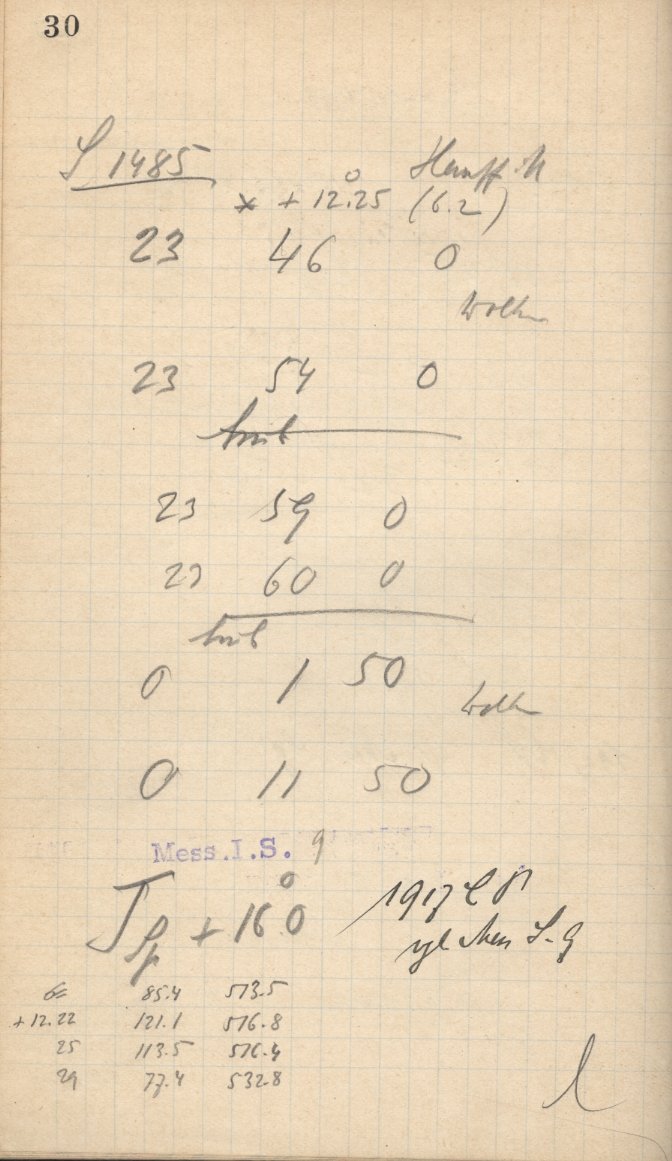 30
S 1485
* + 12°.25 (6.2)
23 46 0
Wolken
23 54 0
trüb
23 59 0
23 60 0
trüb
0 1 50
Wolken
0 11 50
Mess. I. S. 9
+ 16°.0
1917
vgl Mess I. 9
85.4 573.5
+ 12.22 121.1 576.8
25 113.5 576.4
29 77.4 532.8